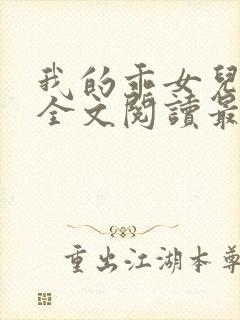 我的乖女兒
全文閱讀最
重出江湖本尊